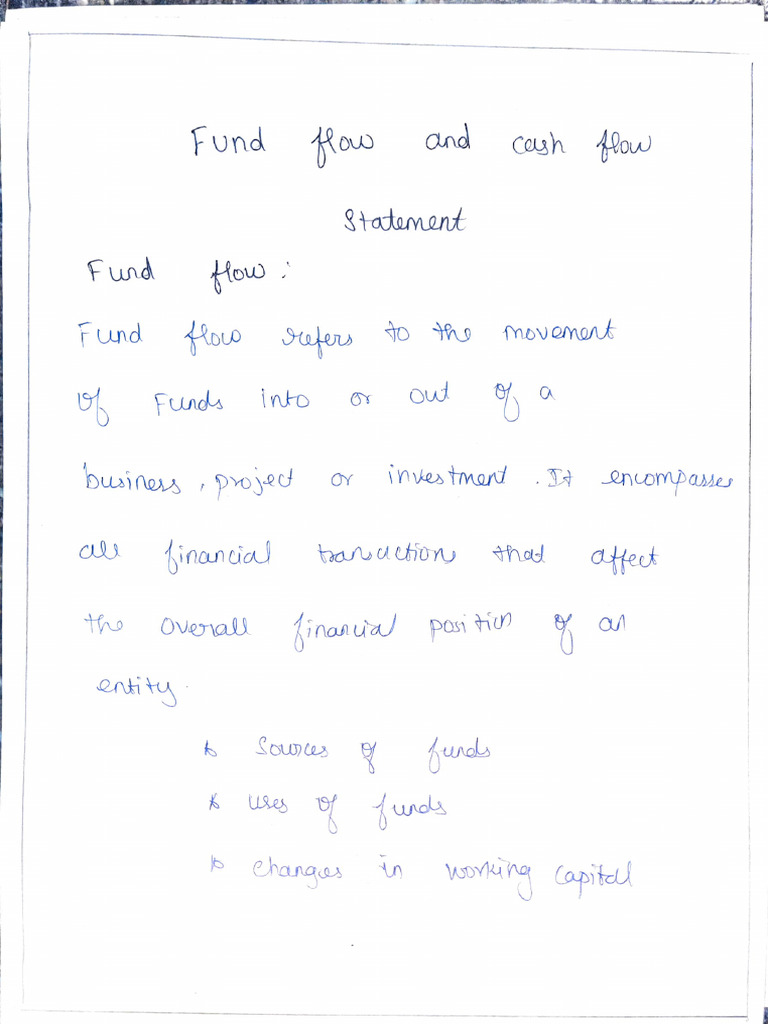 Fund flow and cash flow
Statement
Fund flow :
Fund flow refers to the movement
of Funds into or out of a
business, project or investment. It encompasses
all financial transactions that affect
the overall financial position of an
entity.
* Sources of funds
* uses of funds
* changes in working capital